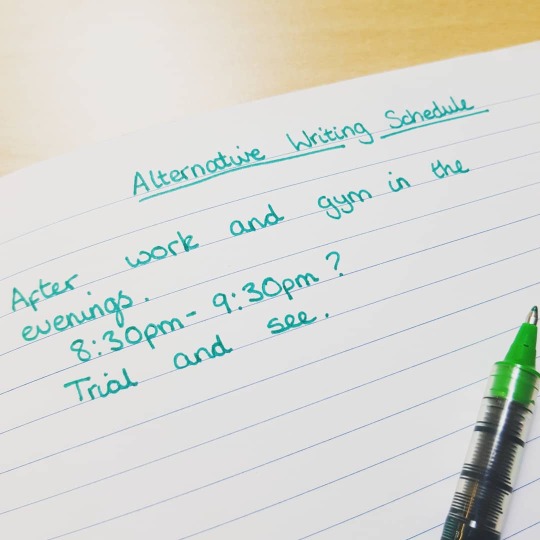 Alternative Writing Schedule
After work and gym in the
evenings.
8:30pm - 9:30pm?
Trial and see.